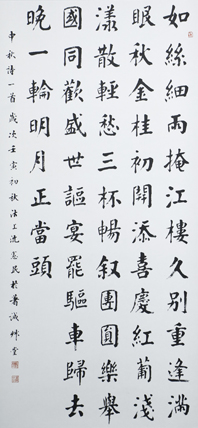 如絲細雨掩江樓久別重逢滿
眼秋金桂初開添喜慶紅葡淺
漾散輕愁三杯暢叙團圓樂舉
國同歡盛世謳宴罷驅車歸去
晚一輪明月正當頭
中秋詩一首歲次壬寅初秋浩上沈憲民於壽誠